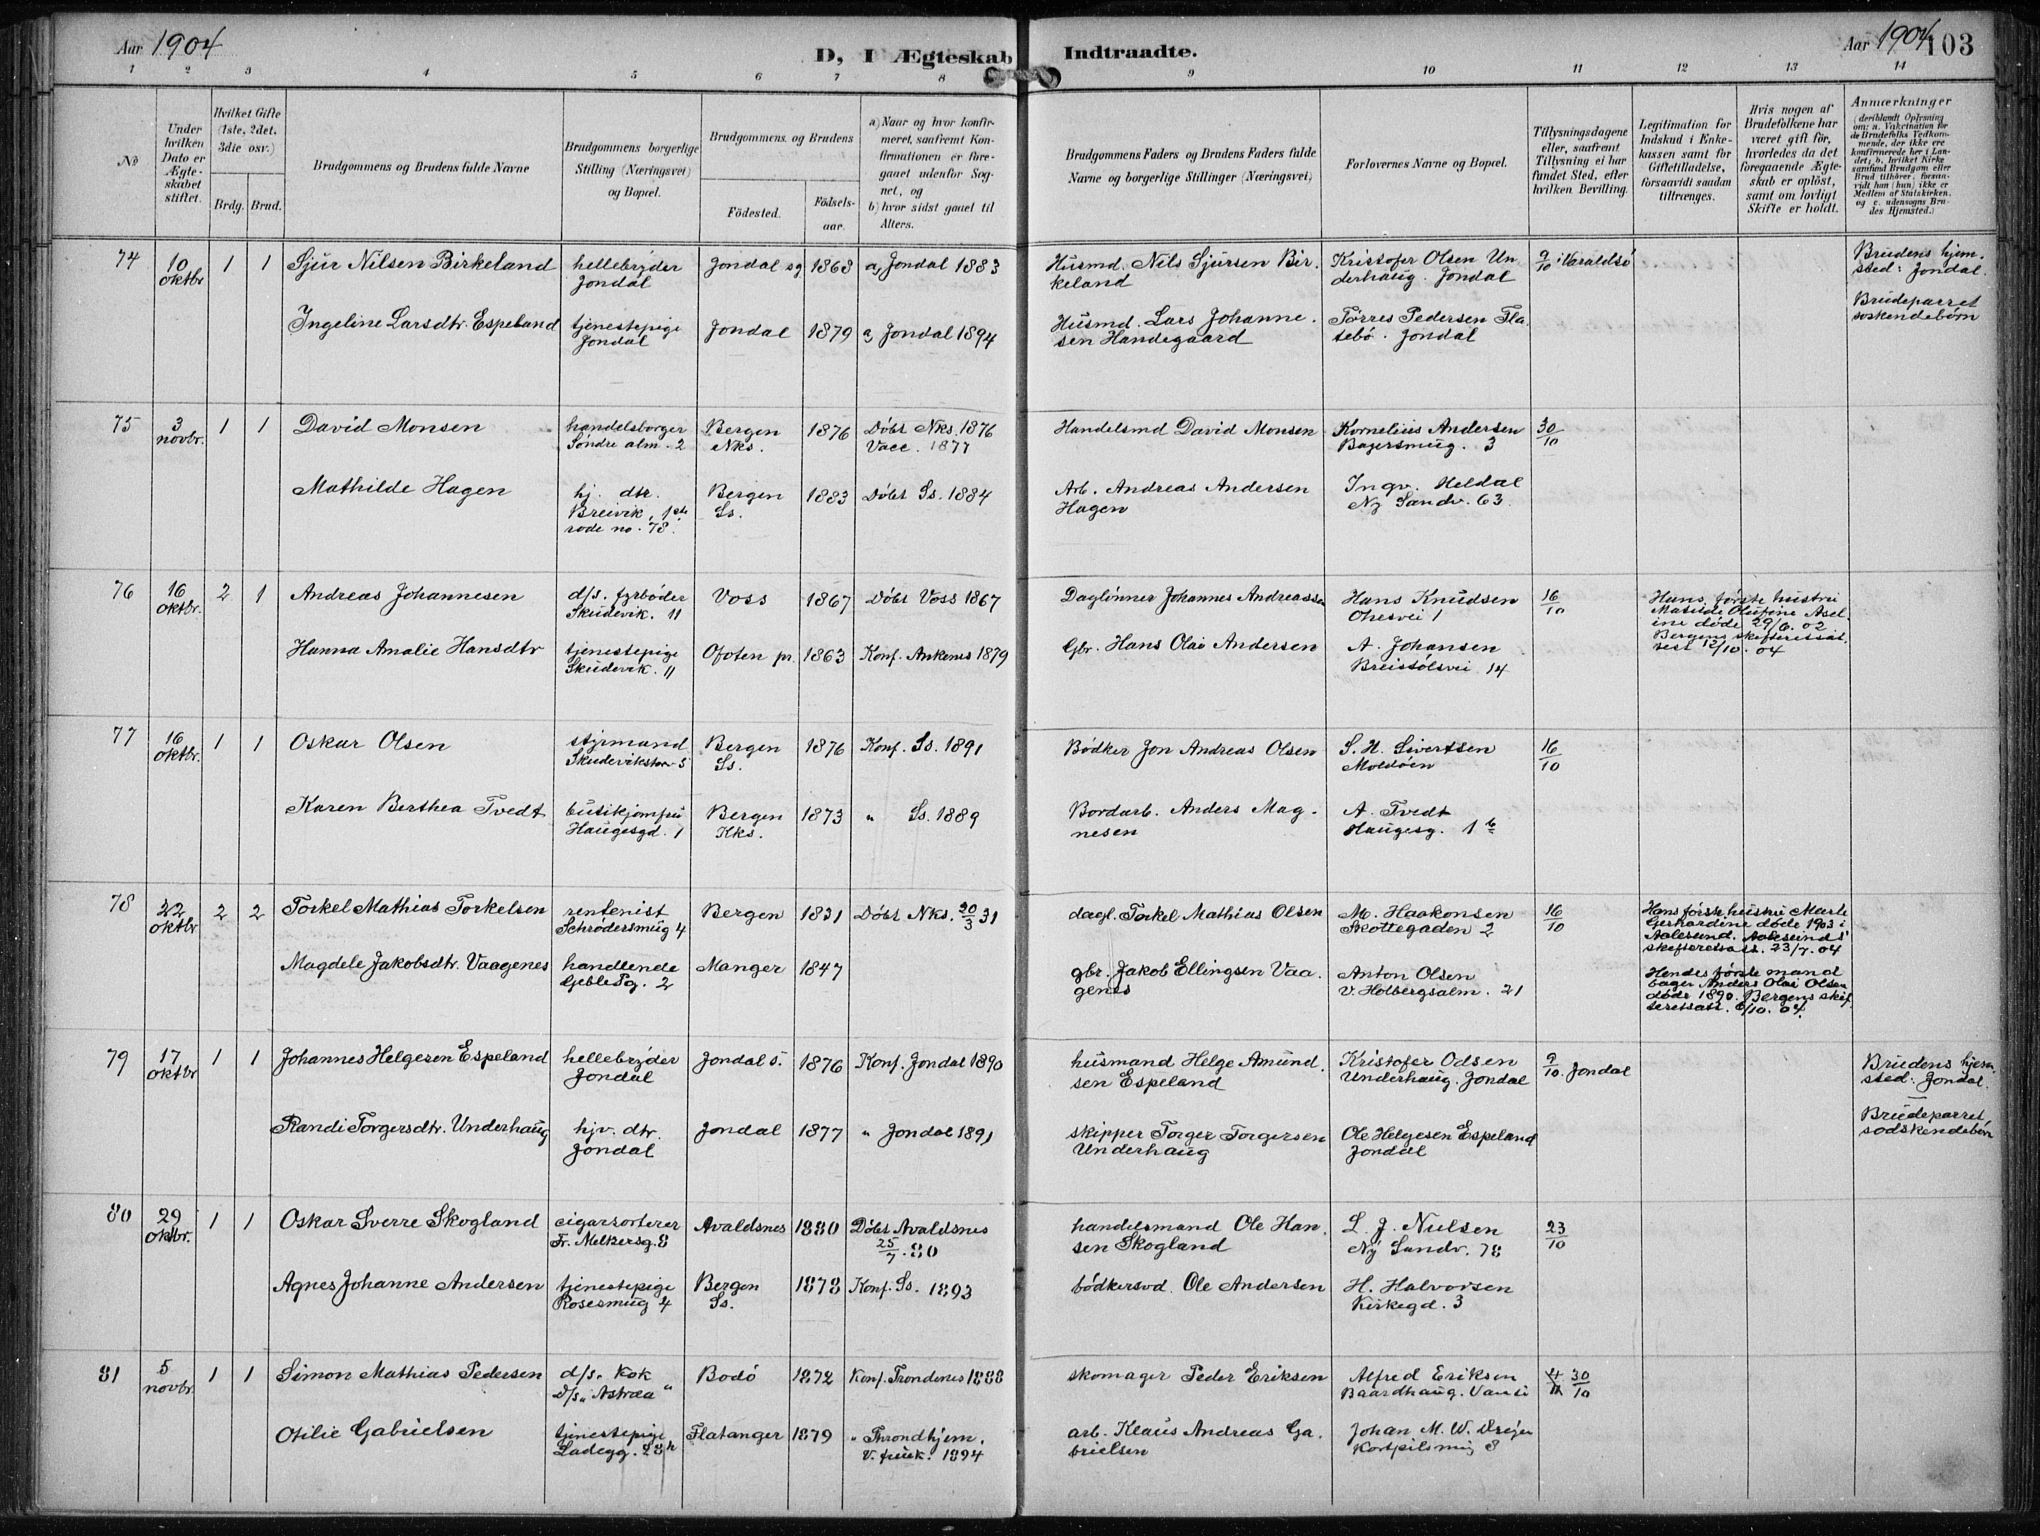 Aar 1904
D, I Ægteskab Indtraadte.
Aar 1904
103
1 2 3 4 5 6 7 8 9 10 11 12 13 14
No
Under hvilken Dato er Ægteskabet stiftet.
Hvilket Gifte (1ste, 2det, 3die osv.)
Brdg. Brud.
Brudgommens og Brudens fulde Navne
Brudgommens borgerlige Stilling (Næringsvei) og Bopæl.
Brudgommens og Brudens
Födested.
Födselsaar.
a) Naar og hvor konfirmeret, saafremt Konfirmationen er foregaaet udenfor Sognet, og
b) hvor sidst gaaet til Alters.
Brudgommens Faders og Brudens Faders fulde Navne og borgerlige Stillinger (Næringsvei)
Forlovernes Navne og Bopæl.
Tillysningsdagene eller, saafremt Tillysning ei har fundet Sted, efter hvilken Bevilling.
Legitimation for Indskud i Enkekassen samt for Giftetilladelse, forsaavidt saadan tiltrænges.
Hvis nogen af Brudefolkene har været gift för, hvorledes da det foregaaende Ægteskab er oplöst, samt om lovligt Skifte er holdt.
Anmærkninger (deriblandt Oplysning om: a. Vakcination for de Brudefolks Vedkommende, der ikke ere konfirmerede her i Landet; b. hvilket Kirkesamfund Brudgom eller Brud tilhörer, forsaavidt han (hun) ikke er Medlem af Statskirken, og c. udensogns Brudes Hjemsted.)
74 10 oktbr 1 1 Sjur Nilsen Birkeland hellebryder Jondal Jondal sg 1863 a, Jondal 1883 Husmd. Nils Sjursen Birkeland Kristofer Olsen Underhaug. Jondal 9/10 i Varaldsö Brudens hjemsted: Jondal.
Ingeline Larsdtr. Espeland tjenestepige Jondal Jondal 1879 a, Jondal 1894 Husmd. Lars Johannesen Handegaard Törres Pedersen Flatebö. Jondal Brudeparret soskendebörn
75 3 novbr. 1 1 David Monsen handelsborger Söndre alm. 2 Bergen Nks. 1876 Döbt Nks. 1876 Vacc. 1877 Handelsmd David Monsen Kornelius Andersen Bagersmug. 3 30/10
Mathilde Hagen hj. dtr. Breivik, 1ste rode no. 78. Bergen Ss. 1883 Döbt Ss. 1884 Arb. Andreas Andersen Hagen Ingv. Heldal Ny Sandv. 63.
76 16 oktbr. 2 1 Andreas Johannesen d/s. fyrböder Skudevik. 11 Voss 1867 Döbt Voss 1867 Daglönner Johannes Andreassen Hans Knudsen 16/10 Hans förste hustru Matilde Olufine Aseline döde 29/6. 02 Bergens skifteretsattest 12/10. 04
Hanna Analie Hansdtr tjenestepige Skudevik. 11 Ofoten pr. 1863 Konf. Ankenes 1879 Gbr. Hans Olai Andersen A. Johansen Breistölsvei 14
77 16 oktbr. 1 1 Oskar Olsen styrmand Skudevikstorv 5 Bergen Ss. 1876 Konf. Ss. 1891 Bödker Jon Andreas Olsen S. H. Sivertsen Moldöen 16/10
Karen Berthea Tvedt butikjomfru Haugesgd. 1 Bergen Kks. 1873 " Ss. 1889 Bordarb. Anders Magnesen A. Tvedt Haugesg. 1 b
78 22 oktbr. 2 2 Torkel Mathias Torkelsen rentenist Schrödersmug 4 Bergen 1831 Döbt Nks. 20/3 31 dagl. Torkel Mathias Olsen M. Haakonsen Skottegaden 2 16/10 Hans förste hustru Marte Gerhardine döde 1903 i Aalesund. Aalesunds skifteretsatt. 23/7. 04
Magdele Jakobsdtr. Vaagenes handlende Geblesg. 2 Manger 1847 gbr. Jakob Ellingsen Vaagenes Anton Olsen V. Holbergsalm. 21 Hendes förste mand bager Anders Olai Olsen döde 1890. Bergens skifteretsatt. 6/10. 04.
79 17 oktbr 1 1 Johannes Helgesen Espeland hellebryder Jondal Jondal s. 1876 Konf. Jondal 1890 husmand Helge Amundsen Espeland Kristofer Odsen Underhaug. Jondal 9/10. Jondal Brudens hjemsted: Jondal.
Randi Torgersdtr. Underhaug hjv. dtr. Jondal Jondal 1877 " Jondal 1891 skipper Torger Torgersen Underhaug Ole Helgesen Espeland Jondal Brudeparret södskendebörn
80 29 oktbr. 1 1 Oskar Sverre Skogland cigarsorterer Fr. Meltzersg. 8 Avaldsnes 1880 Döbt Avaldsnes 25/7. 80 handelsmand Ole Hansen Skogland L. J. Nielsen Ny Sandv. 78 23/10
Agnes Johanne Andersen tjenestepige Rosesmug 4 Bergen Ss. 1878 Konf. Ss. 1893 bödkersvd. Ole Andersen H. Halvorsen Kirkegd. 3
81 5 novbr. 1 1 Simon Mathias Pedersen d/s. kok D/s "Astræa" Bodö 1872 Konf. Trondenes 1888 skomager Peder Eriksen Alfred Eriksen Baardhaug. 30/10
Otilie Gabrielsen tjenestepige Ladegg. Flatanger 1879 " Throndhjem. V. frue k. 1894 arb. Klaus Andreas Gabrielsen Johan M. W. Dreyer Kortpilsmug 8